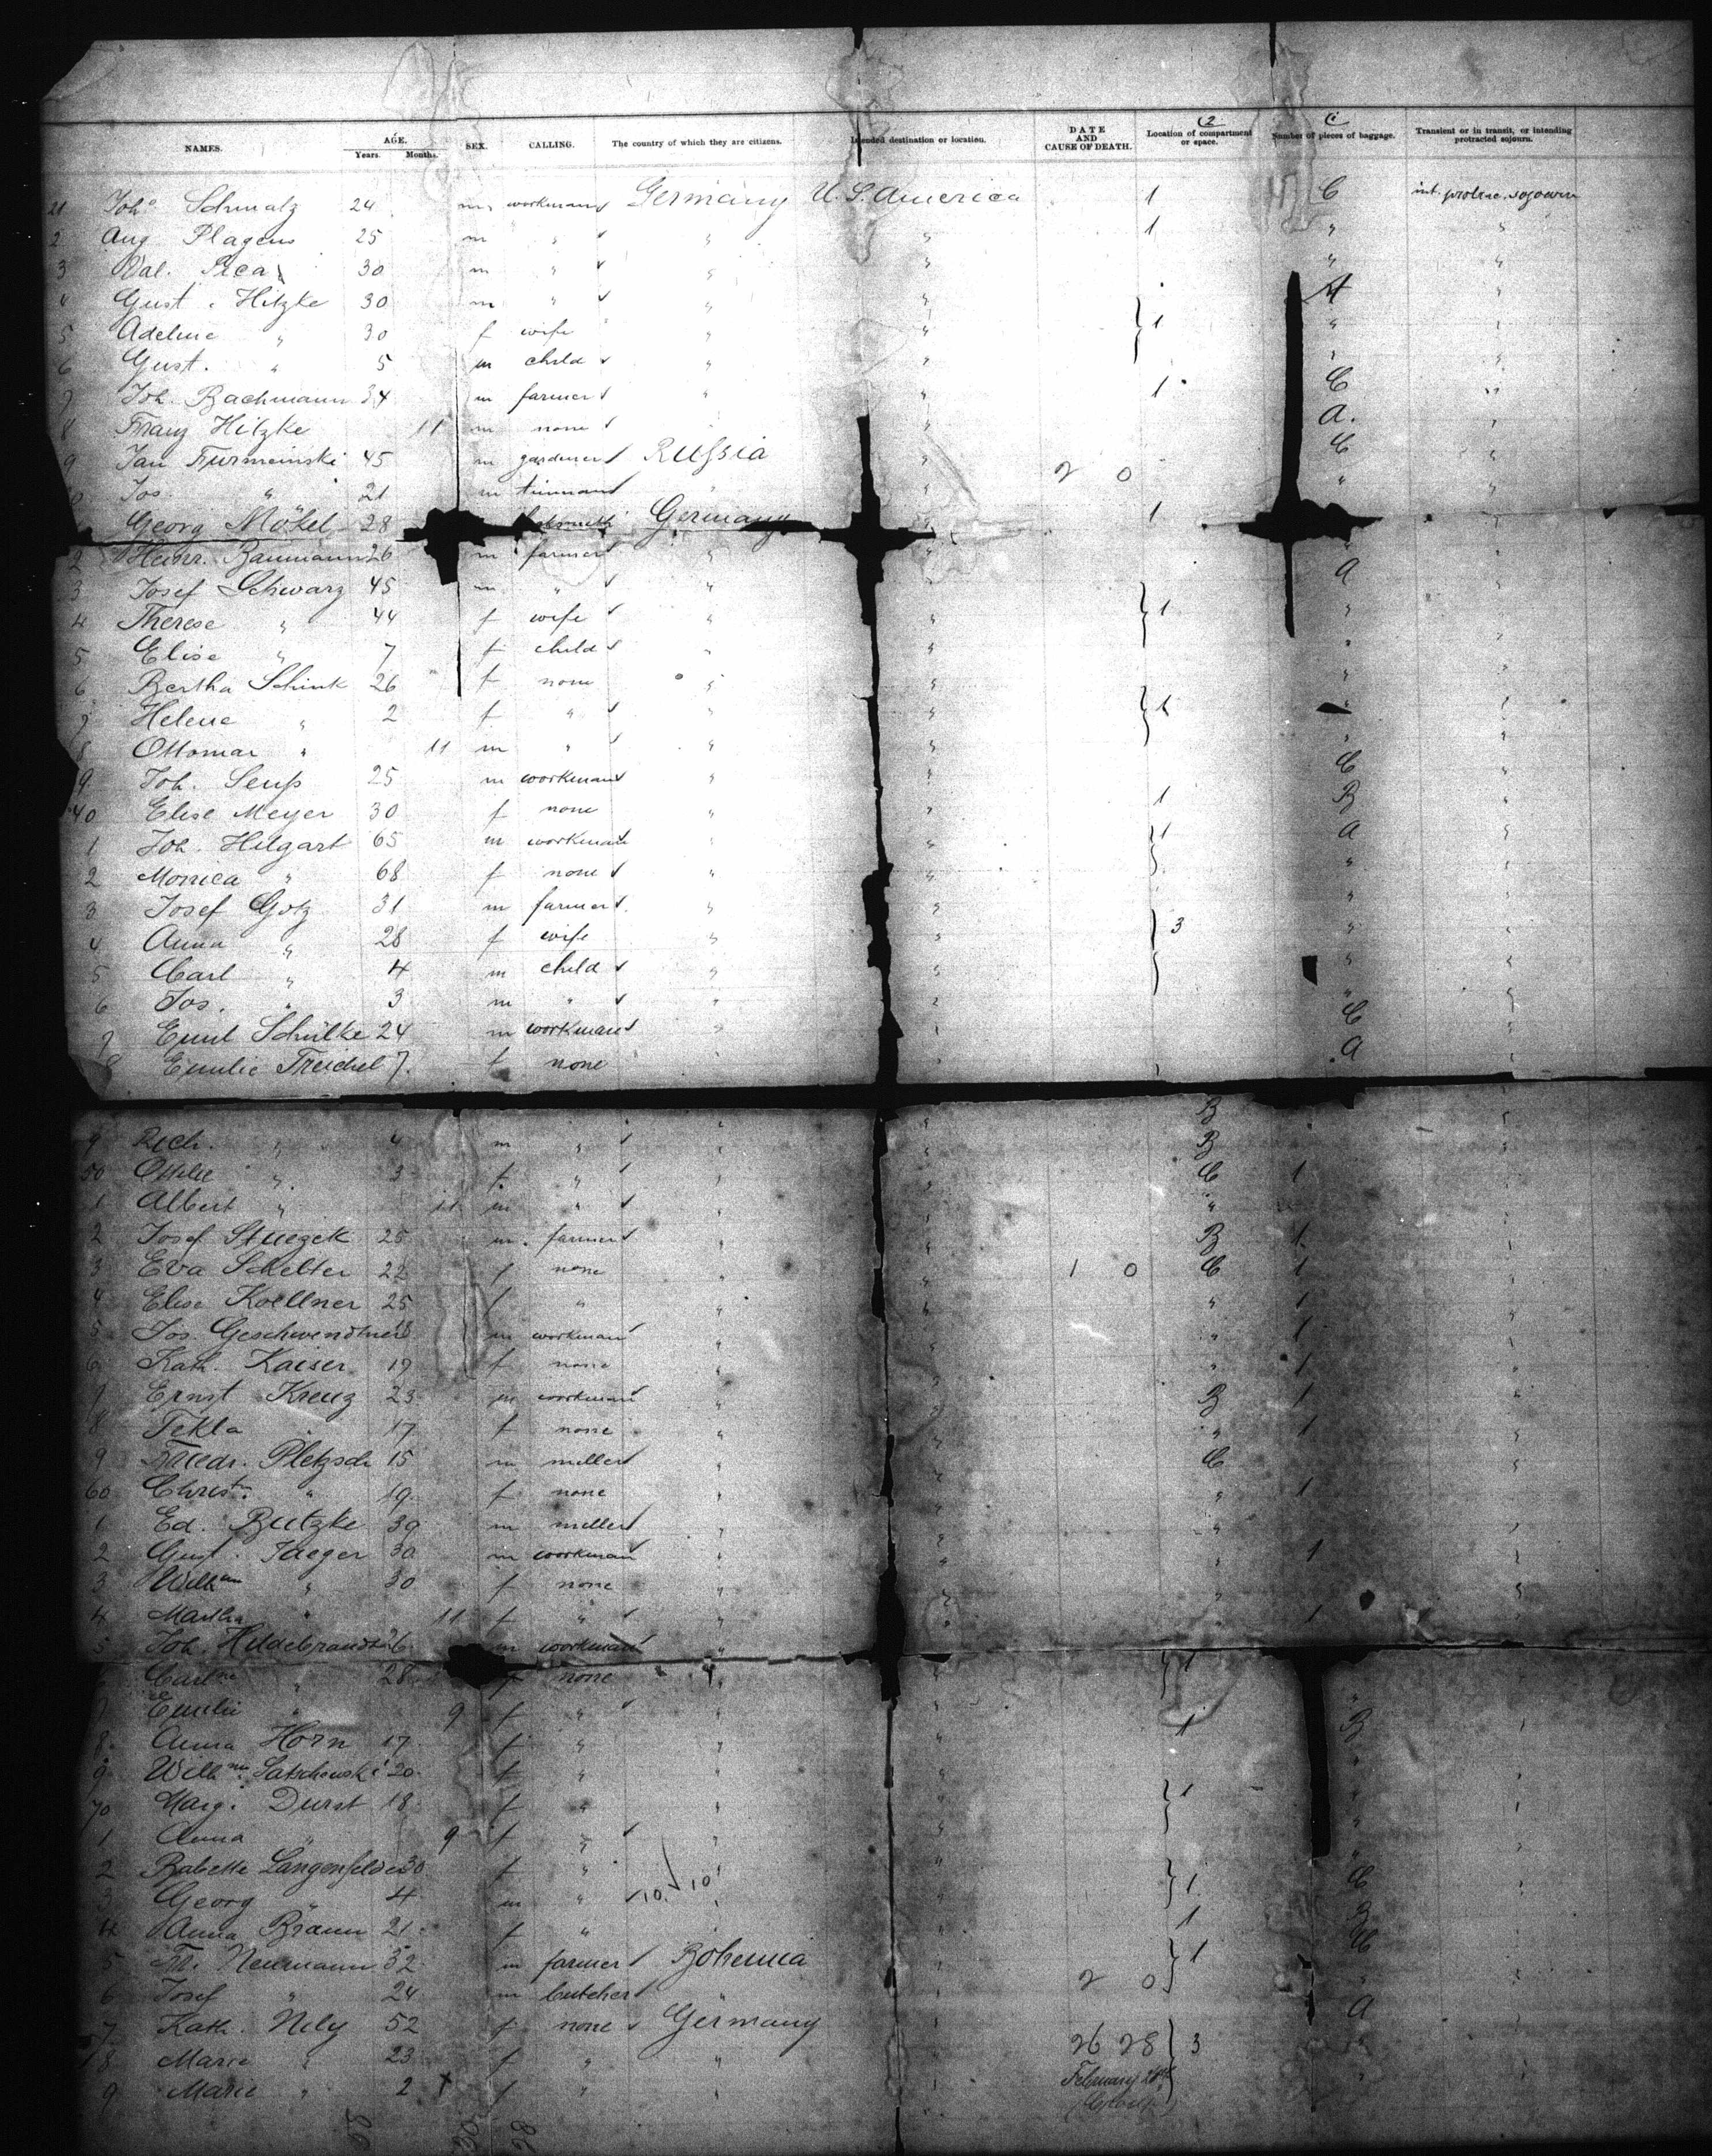 NAMES. AGE. Years. Months. SEX. CALLING. The country of which they are citizens. Intended destination or location. DATE AND CAUSE OF DEATH. Location of compartment or space. Number of pieces of baggage. Transient or in transit, or intending protracted sojourn.
21 Joh. Schmalz 24 m workman Germany U.S. America 1 C int. protrac. sojourn
2 Aug. Plagens 25 m " " " 1 " "
3 Val. 30 m " " " " "
4 Gust. Hitzke 30 m " " " A "
5 Adeline " 30 f wife " " 1 " "
6 Gust. " 5 m child " " " "
7 Joh. Bachmann 34 m farmer " " 1 C "
8 Franz Hitzke 11 m none " " A. "
9 Jan 45 m gardener Russia " 2 0 C "
Jos. " 21 m " " " "
Georg Mökel 28 Germany " 1
2 Heinr. Baumann 26 m farmer " " " "
3 Josef Schwarz 45 m " " " A "
4 Therese " 44 f wife " " 1 " "
5 Elise " 7 f child " " " "
6 Bertha Schink 26 f none " " " "
7 Helene " 2 f " " " 1 " "
8 Ottomar " 11 m " " " " "
9 Joh. Seuß 25 m workman " " C "
40 Elise Meyer 30 f none " " 1 B "
1 Joh. Hilgart 65 m workman " " 1 A "
2 Monica " 68 f none " " " "
3 Josef Götz 31 m farmer " " " "
4 Anna " 28 f wife " " 3 " "
5 Carl " 4 m child " " " "
6 Jos. " 3 m " " " " "
7 Emil Schülke 24 m workman " " C "
8 Emilie Treichel 7. f none " " A "
B
9 Rich. " 4 m " " " B "
50 Ottilie " 3 f " " " C 1
1 Albert " 11 m " " " "
2 Josef 25 m farmer " " B 1
3 Eva Schelter 22 f none " " 1 0 C 1
4 Elise Koellner 25 f " " " " 1
5 Jos. Geschwendtner m workman " " " 1 "
6 Kath. Kaiser 19 f none " " " 1 "
7 Ernst Kreuz 23 m workman " " B 1 "
8 Tekla " 17 f none " " " 1 "
9 Friedr. Pletzsch 15 m miller " " C "
60 Christ. " 19 f none " " " 1
1 Ed. Butzke 39 m miller " " "
2 Gust. Jaeger 30 m workman " " " 1 "
3 Wilhne " 30 f none " " " "
4 Martha " 11 f " " " 1
5 Joh. Hildebrandt 26 m workman " "
6 Carlne " 28 f none " " 1
7 Emilie " 9 f " " " "
8 Anna Horn 17 f " " " 1 B "
9 Wilhne 20 f " " " "
70 Marg. Durst 18 f " " " 1 " "
1 Anna " 9 f " " " "
2 Babette Langenfelder 30 f " " " "
3 Georg " 4 m " 10 10 " 1 C "
4 Anna Braun 21 f " " " 1 B
5 Fr. Neumann 32 m farmer Bohemia " 1 C "
6 Josef " 24 m butcher " " 2 0 "
7 Kath. Nely 52 f none Germany " A "
8 Marie " 23 f " " " 26 28 3 "
9 Marie " 2 f " " " February "